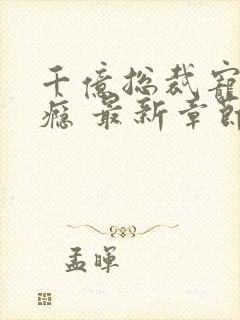 千億总裁寵
癮 最新章節
孟暉